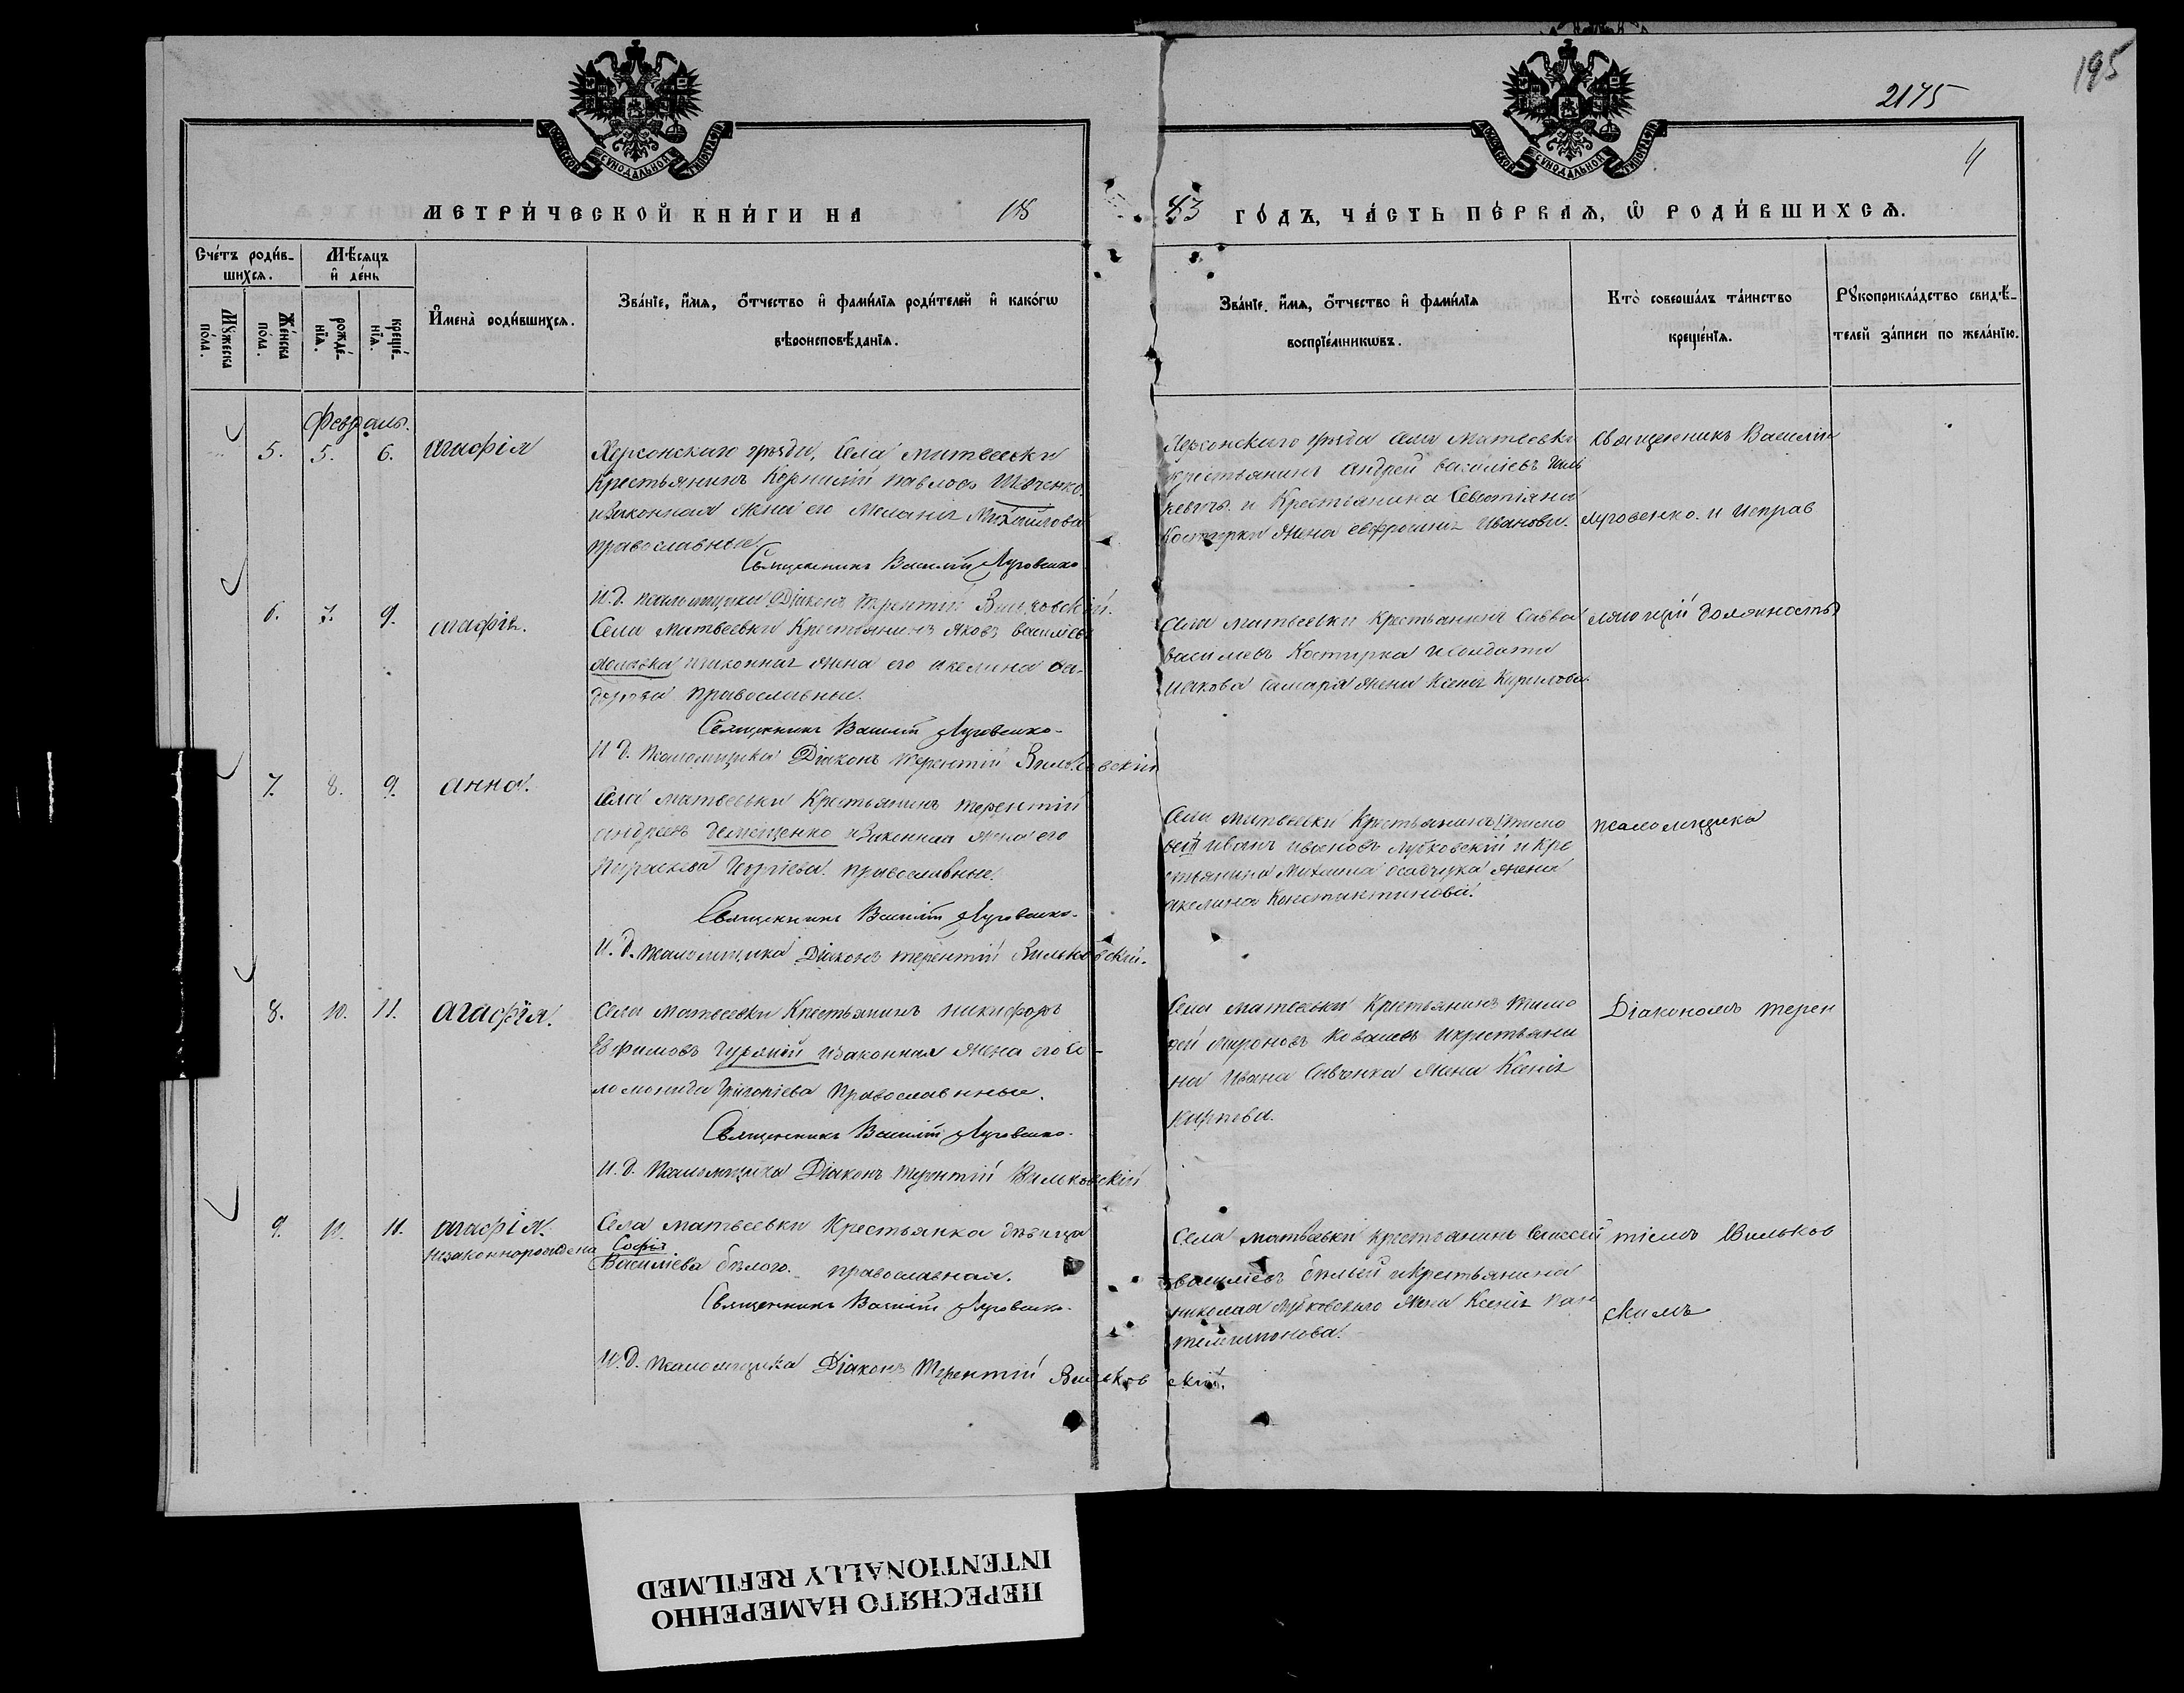 195
2175
4
МЕТРИ́ЧЕСКОЙ КНИ́ГИ НА 18
83 ГО́ДЪ, ЧА́СТЬ ПЕ́РВАЯ, Ѡ РОДИ́ВШИХСЯ.
Сче́тъ роди́в-
шихся.
Мѣ́сяцъ
и де́нь
Му́жеска
по́ла.
Же́нска
по́ла.
рожде́-
нїя.
креще́-
нїя.
Имена̀ роди́вшихся.
Зва́нїе, и́мя, о́тчество и фами́лїя роди́телей и како́гѡ
вѣроисповѣ́данїя.
Зва́нїе, и́мя, о́тчество и фами́лїя
воспрїе́мникѡвъ.
Кто̀ соверша́лъ та́инство
креще́нїя.
Рукоприкла́дство свидѣ́-
телей за́писи по жела́нїю.
Февраль.
5. 5. 6. Агафія
Херсонскаго уѣзда, Села Матвеевки
крестьянинъ Корнилій Павловъ Шевченко
и законная жена его Меланія Михайлова
православные
Священникъ Василій Луговенко
И. д. псаломщика Діаконъ Терентій Вильковскій.
Херсонскаго уѣзда Села Матвеевки
крестьянинъ Андрей Василіевъ
и Крестьянина Севастіяна
Костырки жена Евфросинія Иванова.
Священникъ Василій
Луговенко. и исправ
6. 7. 9. Агафія.
Села Матвеевки Крестьянинъ Яковъ Василіевъ
и законная жена его Акелина
православные.
Священникъ Василій Луговенко-
И д. Псаломщика Діаконъ Терентій Вильковскій
Села Матвеевки Крестьянинъ Савва
Василіевъ Костырка и солдата
Иакова жена Ксенія Кирилова
ляющій должность
7. 8. 9. Анна.
Села Матвеевки Крестьянинъ Терентій
Андреевъ и законная жена его
Параскева православные.
Священникъ Василій Луговенко-
И. д. Псаломщика Діаконъ Терентій Вильковскій.
Села Матвеевки Крестьянинъ
Иванъ Ивановъ Лубковскій и Кре
стьянина Михаила Осадчука жена
Акелина Константинова.
псаломщика
8. 10. 11. Агафія.
Села Матвеевки Крестьянинъ Никифоръ
Ефимовъ и законная жена его Со-
ломонида Григоріева Православнные.
Священникъ Василій Луговенко.
И. д. Псаломщика Діаконъ Терентій Вильковскій
Села Матвеевки Крестьянинъ Тимо
фей Мироновъ Ковалевъ и крестьяни
на Ивана Савченка жена Ксенія
Карпова.
Діакономъ Терен
9. 11. 11. Агафія.
незаконнорождена
Села Матвеевки Крестьянка дѣвица
Софія
Василіева Бѣлого. православная.
Священникъ Василій Луговенко.
И. д. Псаломщика Діаконъ Терентій Вильков скій.
Села Матвеевки крестьянинъ
Василіевъ Бѣлый и Крестьянина
Николая Лубковского жена Ксенія Пан
телеимонова.
тіемъ Вильков
скимъ
ПЕРЕСНЯТО НАМЕРЕННО
INTENTIONALLY REFILMED